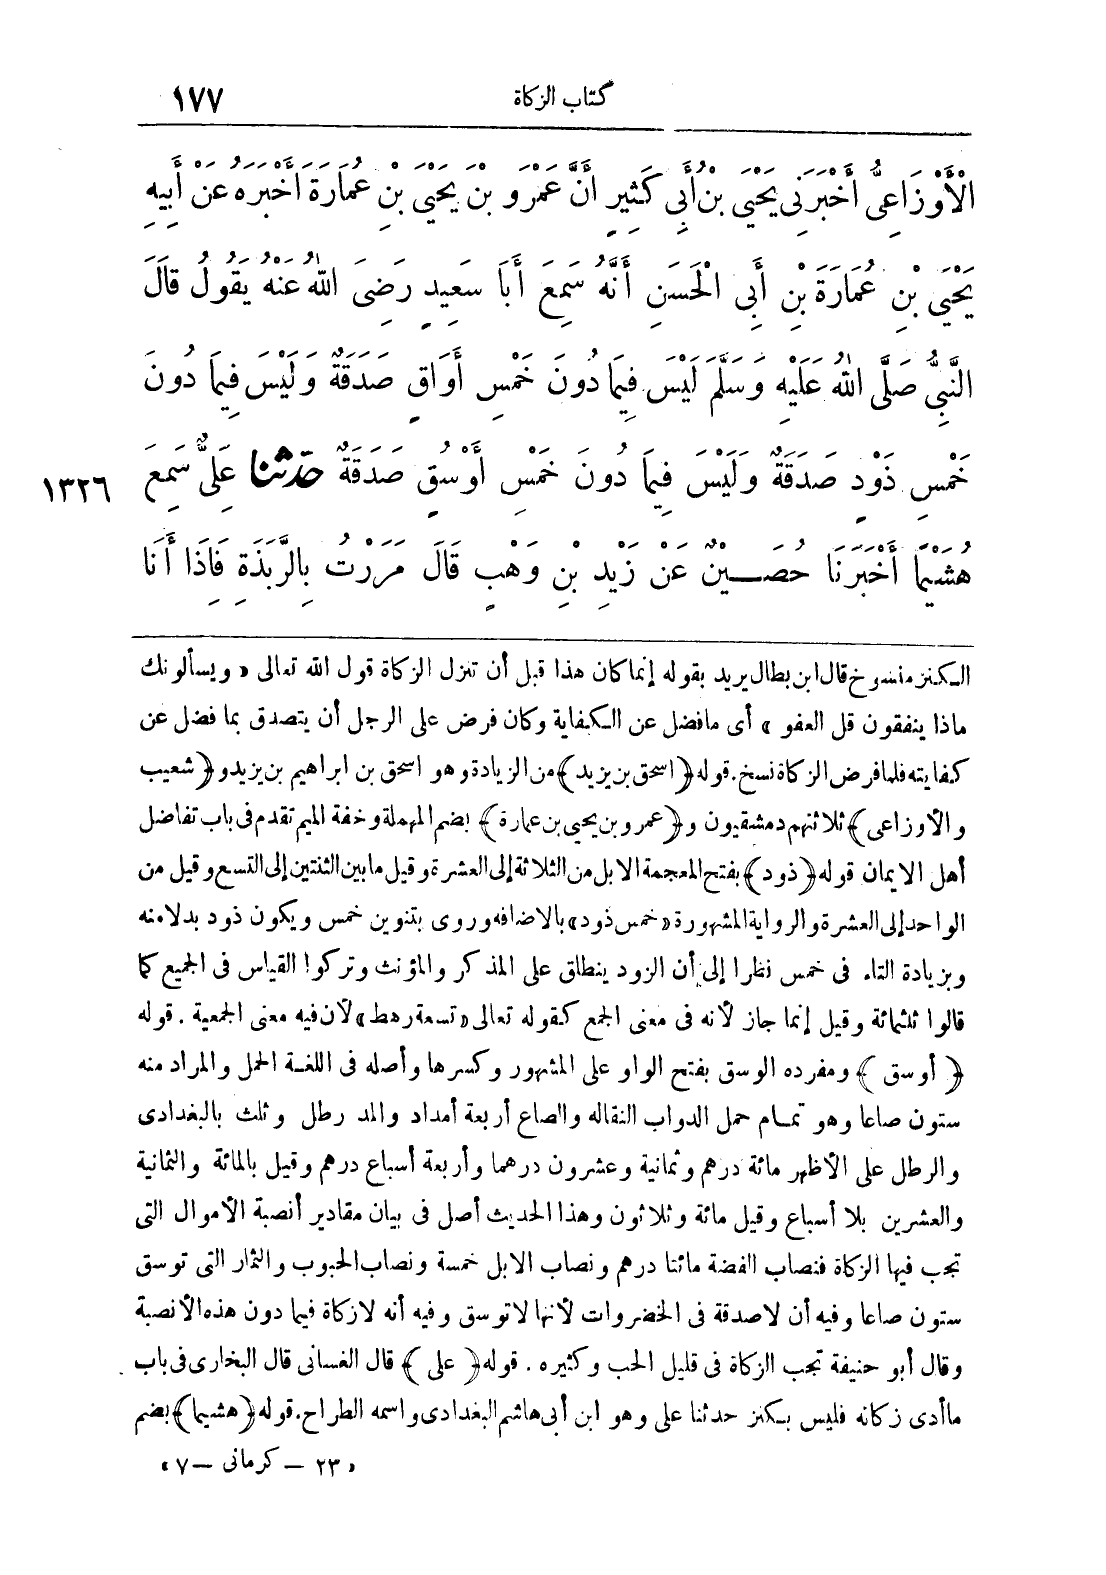 كتاب الزكاة ١٧٧
الْأَوْزَاعِىُّ أَخْبَرَنِى يَحْيَى بْنُ أَبِى كَثِيرٍ أَنَّ عَمْرَو بْنَ يَحْيَى بْنِ عُمَارَةَ أَخْبَرَهُ عَنْ أَبِيهِ
يَحْيَى بْنِ عُمَارَةَ بْنِ أَبِى الْحَسَنِ أَنَّهُ سَمِعَ أَبَا سَعِيدٍ رَضِىَ اللهُ عَنْهُ يَقُولُ قَالَ
النَّبِىُّ صَلَّى اللهُ عَلَيْهِ وَسَلَّمَ لَيْسَ فِيمَا دُونَ خَمْسِ أَوَاقٍ صَدَقَةٌ وَلَيْسَ فِيمَا دُونَ
خَمْسِ ذَوْدٍ صَدَقَةٌ وَلَيْسَ فِيمَا دُونَ خَمْسِ أَوْسُقٍ صَدَقَةٌ حَدَّثَنَا عَلِىٌّ سَمِعَ ١٣٢٦
هُشَيْمًا أَخْبَرَنَا حُصَــيْنٌ عَنْ زَيْدِ بْنِ وَهْبٍ قَالَ مَرَرْتُ بِالرَّبَذَةِ فَاِذَا أَنَا
الكنز منسوخ قال ابن بطال يريد بقوله إنما كان هذا قبل أن تنزل الزكاة قول الله تعالى « ويسألونك
ماذا ينفقون قل العفو » أى مافضل عن الكفاية وكان فرض على الرجل أن يتصدق بما فضل عن
كفايته فلما فرض الزكاة نسخ. قوله ﴿اسحق بن يزيد﴾ من الزيادة وهو اسحق بن ابراهيم بن يزيد و﴿شعيب
والأوزاعى﴾ ثلاثتهم دمشقيون و﴿عمرو بن يحيى بن عمارة﴾ بضم المهملة وخفة الميم تقدم فى باب تفاضل
أهل الايمان قوله ﴿ذود﴾ بفتح المعجمة الابل من الثلاثة إلى العشرة وقيل ما بين الثنتين إلى التسع وقيل من
الواحد إلى العشرة والرواية المشهورة «خمس ذود» بالاضافه وروى بتنوين خمس ويكون ذود بدلا منه
وبزيادة التاء فى خمس نظرا إلى أن الزود ينطلق على المذكر والمؤنث وتركوا القياس فى الجميع كما
قالوا ثلثمائة وقيل إنما جاز لأنه فى معنى الجمع كقوله تعالى «تسعة رهط» لأن فيه معنى الجمعية . قوله
﴿أوسق﴾ ومفرده الوسق بفتح الواو على المشهور وكسرها وأصله فى اللغـة الحمل والمراد منه
ستون صاعا وهو تمـام حمل الدواب النقاله والصاع أربعة أمداد والمد رطل وثلث بالبغدادى
والرطل على الأظهر مائة درهم وثمانية وعشرون درهما وأربعة أسباع درهم وقيل بالمائة والثمانية
والعشرين بلا أسباع وقيل مائة وثلاثون وهذا الحديث أصل فى بيان مقادير أنصبة الأموال التى
تجب فيها الزكاة فنصاب الفضة مائتا درهم ونصاب الابل خمسة ونصاب الحبوب والثمار التى توسق
ستون صاعا وفيه أن لا صدقة فى الخضروات لأنها لا توسق وفيه أنه لا زكاة فيما دون هذه الأنصبة
وقال أبو حنيفة تجب الزكاة فى قليل الحب وكثيره . قوله ﴿على﴾ قال الغسانى قال البخارى فى باب
ما أدى زكاته فليس بكنز حدثنا على وهو ابن أبى هاشم البغدادى واسمه الطراح. قوله ﴿هشيما﴾ بضم
« ٢٣ – كرمانى – ٧ »